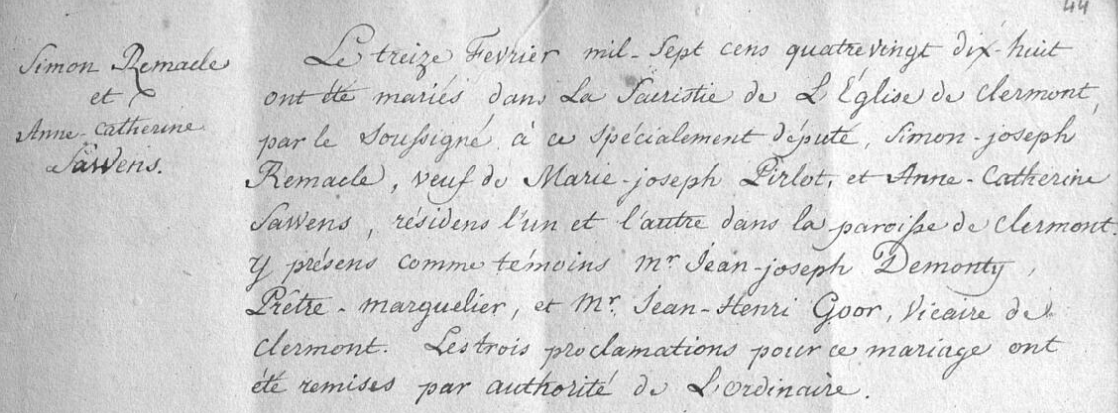 44
Simon Remacle
et
Anne-Catherine
Sawens.
Le treize Fevrier mil-Sept cens quatrevingt dix-huit
ont été mariés dans La Sacristie de L'Église de Clermont,
par le Soussigné, à ce Spécialement député, Simon-joseph
Remacle, veuf de Marie-joseph Pirlot, et Anne-Catherine
Sawens, résidens l'un et l'autre dans la paroisse de Clermont.
Y présens comme témoins Mr. Jean-joseph Demonty,
Prêtre-marguelier, et Mr. Jean-Henri Goor, Vicaire de
Clermont. Les trois proclamations pour ce mariage ont
été remises par authorité de L'ordinaire.